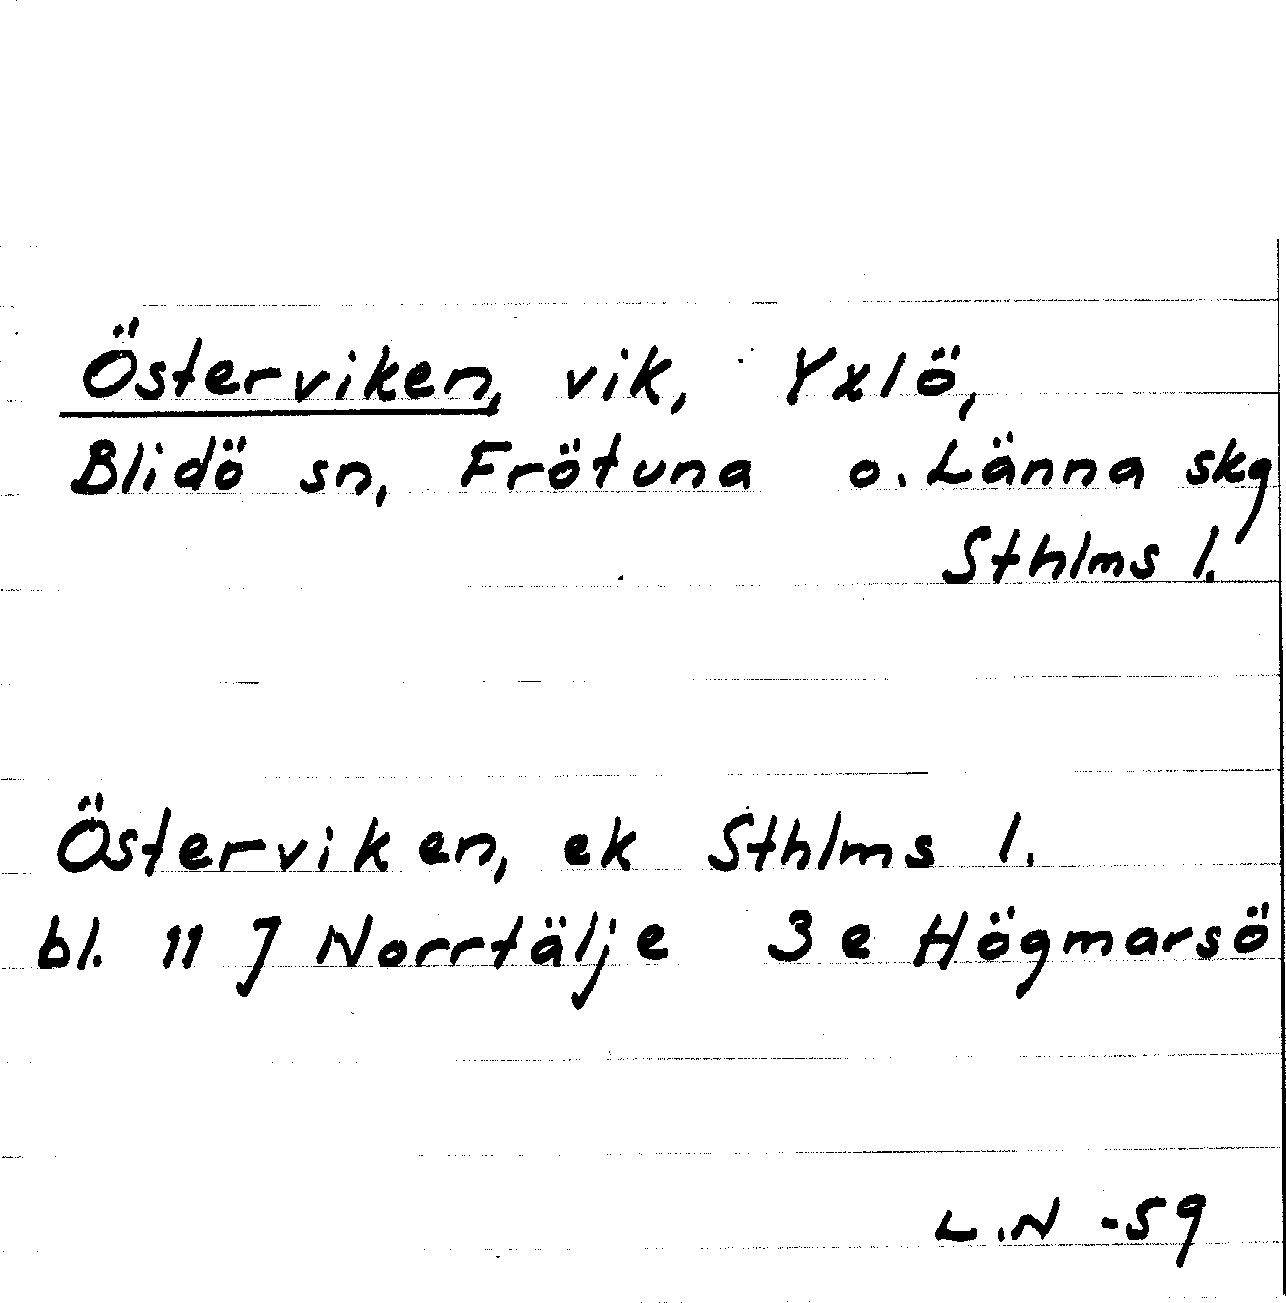 Österviken, vik, Yxlö,
Blidö sn, Frötuna o. Länna skg
Sthlms l.
Österviken, ek Sthlms l.
bl. 11 J Norrtälje 3 e Högmarsö
L.N -59